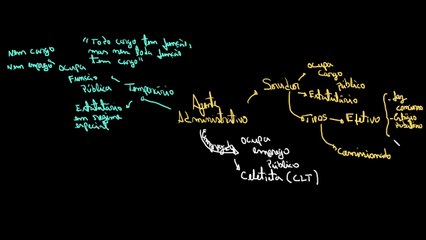 "Todo cargo tem função,
mas nem toda função
tem cargo"
Nem cargo
Nem emprego
Ocupa
Função
Pública
Temporário
Estatutário
em regime
especial
Agente
Administrativo
Servidor
Ocupa
Cargo
Público
Estatutário
Tipos
Efetivo
concurso
Comissionado
ocupa
emprego
Público
Celetista (CLT)